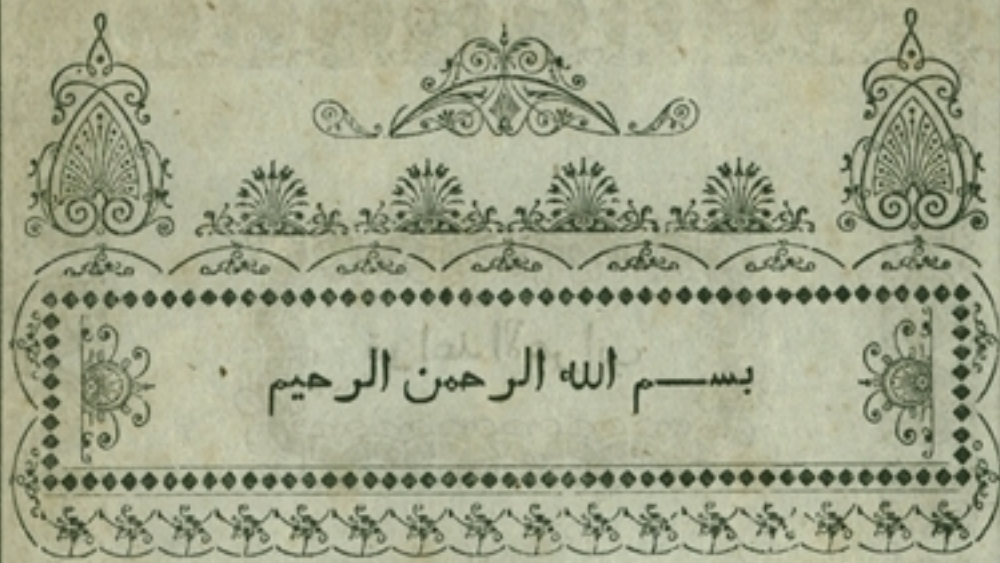 بســـم الله الرحمن الرحيم